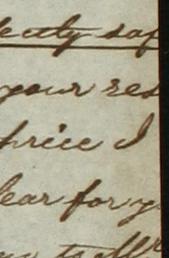 ectly saf
your res
hrice I
lear for y